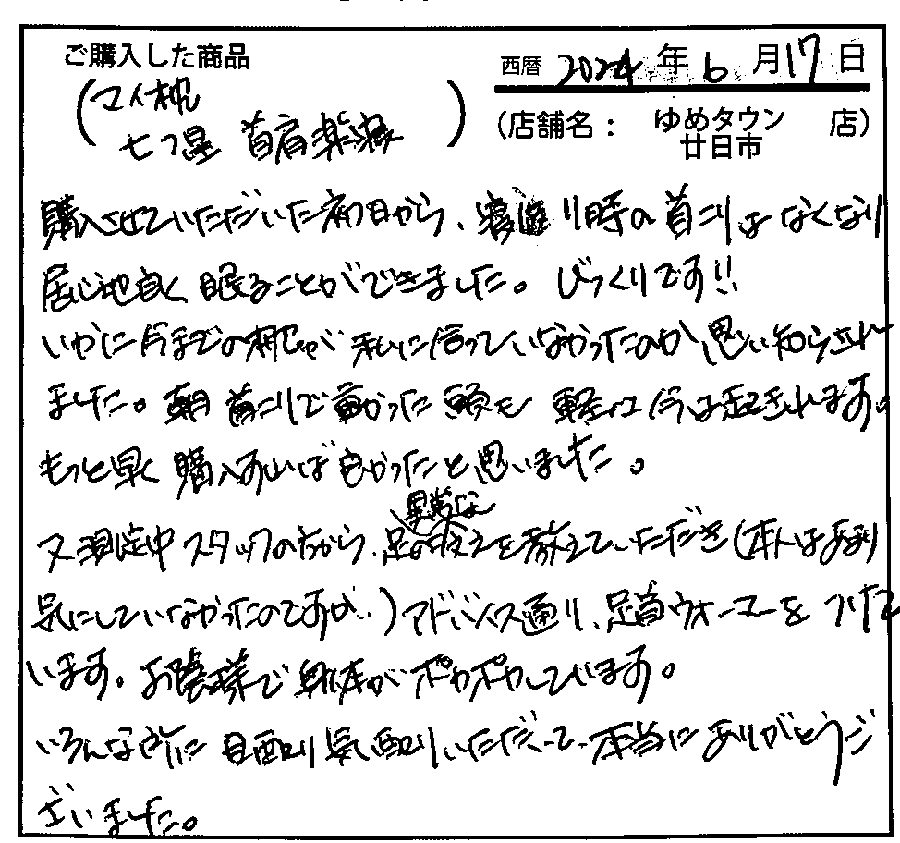 ご購入した商品
西暦 2024 年 6 月 17 日
(マイ枕
七つ星 首肩楽寝)
(店舗名: ゆめタウン廿日市 店)
購入させていただいた初日から、寝返り時の首こりはなくなり
居心地良く眠ることができました。びっくりです!!
いかに今までの枕が私に合っていなかったのか思い知らされ
ました。朝首こりで重かった頭も軽く今は起きれます。
もっと早く購入すれば良かったと思いました。
又測定中スタッフの方から、足の異常な冷えを教えていただき(本人はあまり
気にしていなかったのですが‥)アドバイス通り、足首ウォーマーをつけて
います。お陰様で身体がポカポカしています。
いろんな所に目配り気配りいただいて本当にありがとうご
ざいました。